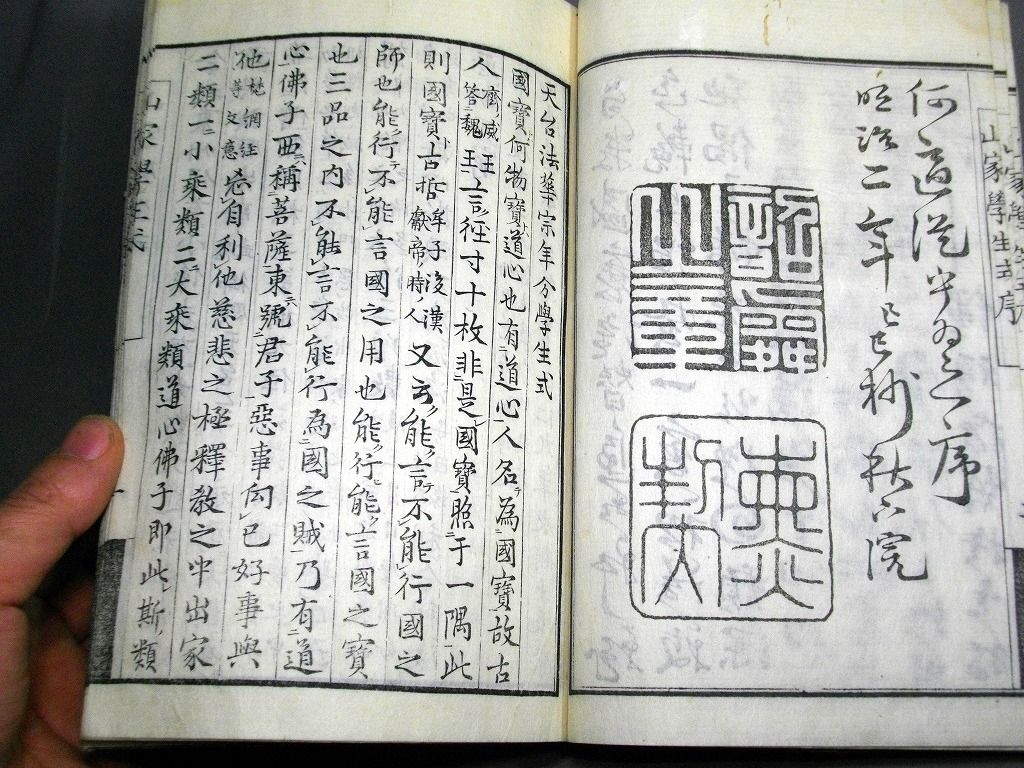 山家學生式序
明治二年己巳
天台法華宗年分學生式
國寶何物寶道心也有道心人名為國寶故古
人齊威王答魏王言徑寸十枚非是國寶照于一隅此
則國寶古哲牟子後漢獻帝時人又云能言不能行國之
師也能行不能言國之用也能行能言國之寶
也三品之内不能言不能行為國之賊乃有道
心佛子西稱菩薩東號君子惡事向已好事與
他梵網經等文意忘自利他慈悲之極釋教之中出家
二類一小乘類二大乘類道心佛子即此斯類
山家學生式